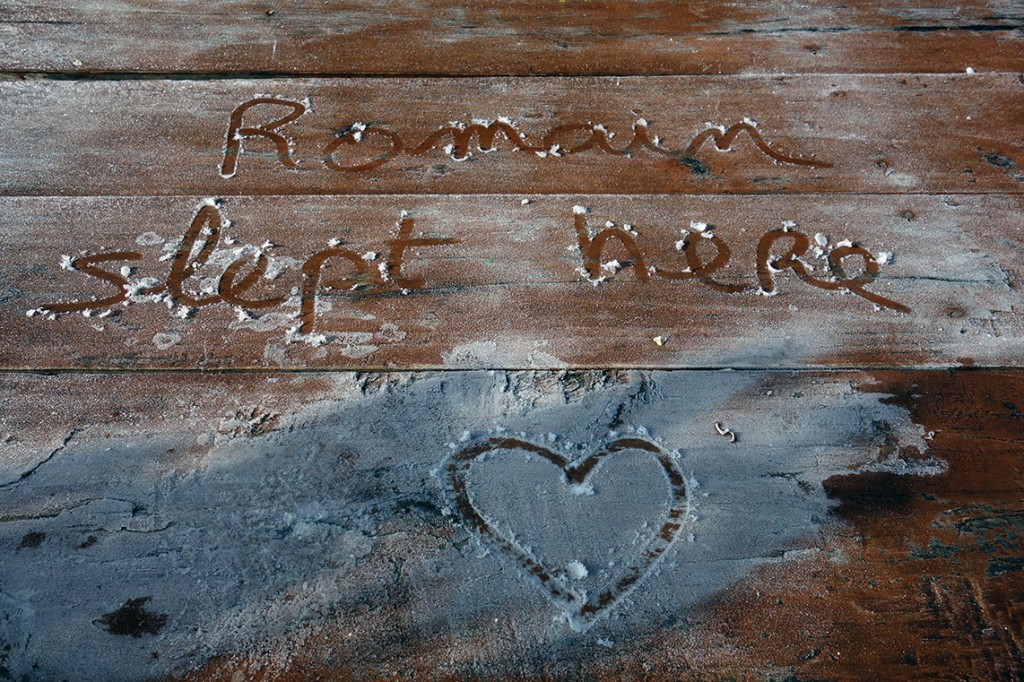 Romain
slept here